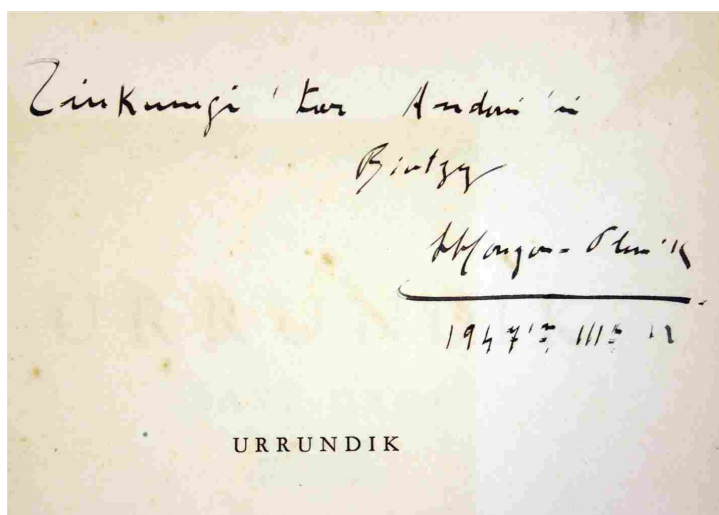 Zinkunegi 'tar Andoni 'ri
Biotzez
Monzon-Olaso'k
1947
URRUNDIK